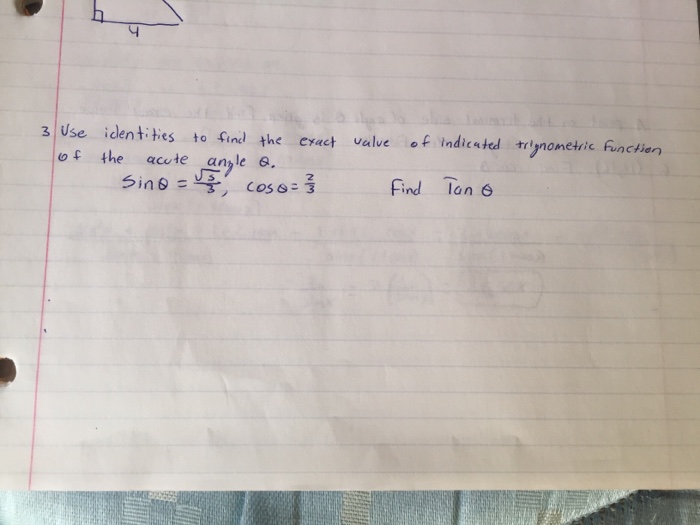 4
3 Use identities to find the exact value of indicated trignometric function
of the acute angle θ.
sin θ = √3/3, cos θ = 2/3 Find Tan θ